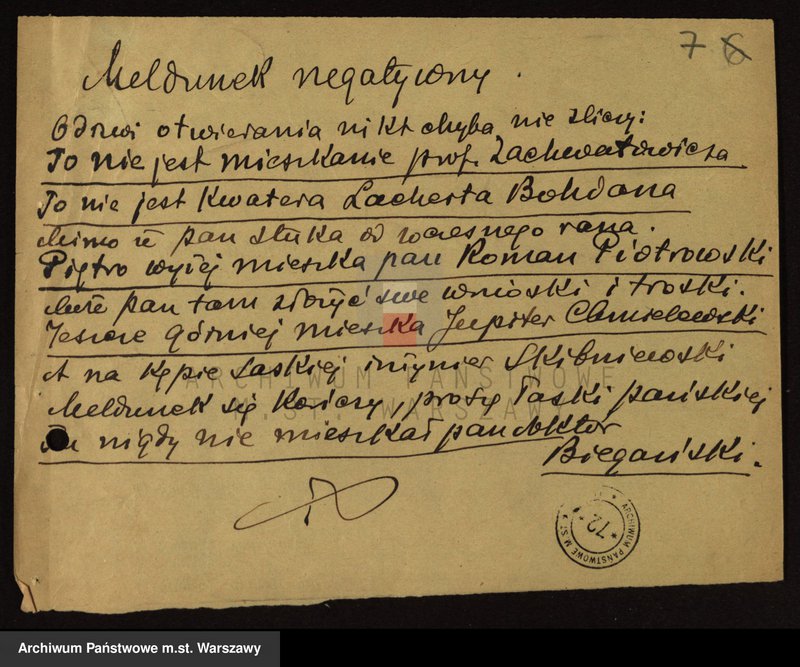 7 6
Meldunek negatywny.
Odrzwi otwierania nikt chyba nie zliczy:
To nie jest mieszkanie prof. Zachwatowicza.
To nie jest kwatera Lacherta Bohdana
Mimo iż pan stuka od wczesnego rana.
Piętro wyżej mieszka pan Roman Piotrowski
Może pan tam złożyć swe wnioski i troski.
Jeszcze górniej mieszka Jupiter Chmielewski
A na Kępie Saskiej inżynier Skibniewski
Meldunek się kończy, proszę łaski pańskiej
Tu nigdy nie mieszkał pan doktor
Biegański.
ARCHIWUM PAŃSTWOWE
M.ST. WARSZAWY
ARCHIWUM PAŃSTWOWE M.ST.
* 72 *
Archiwum Państwowe m.st. Warszawy